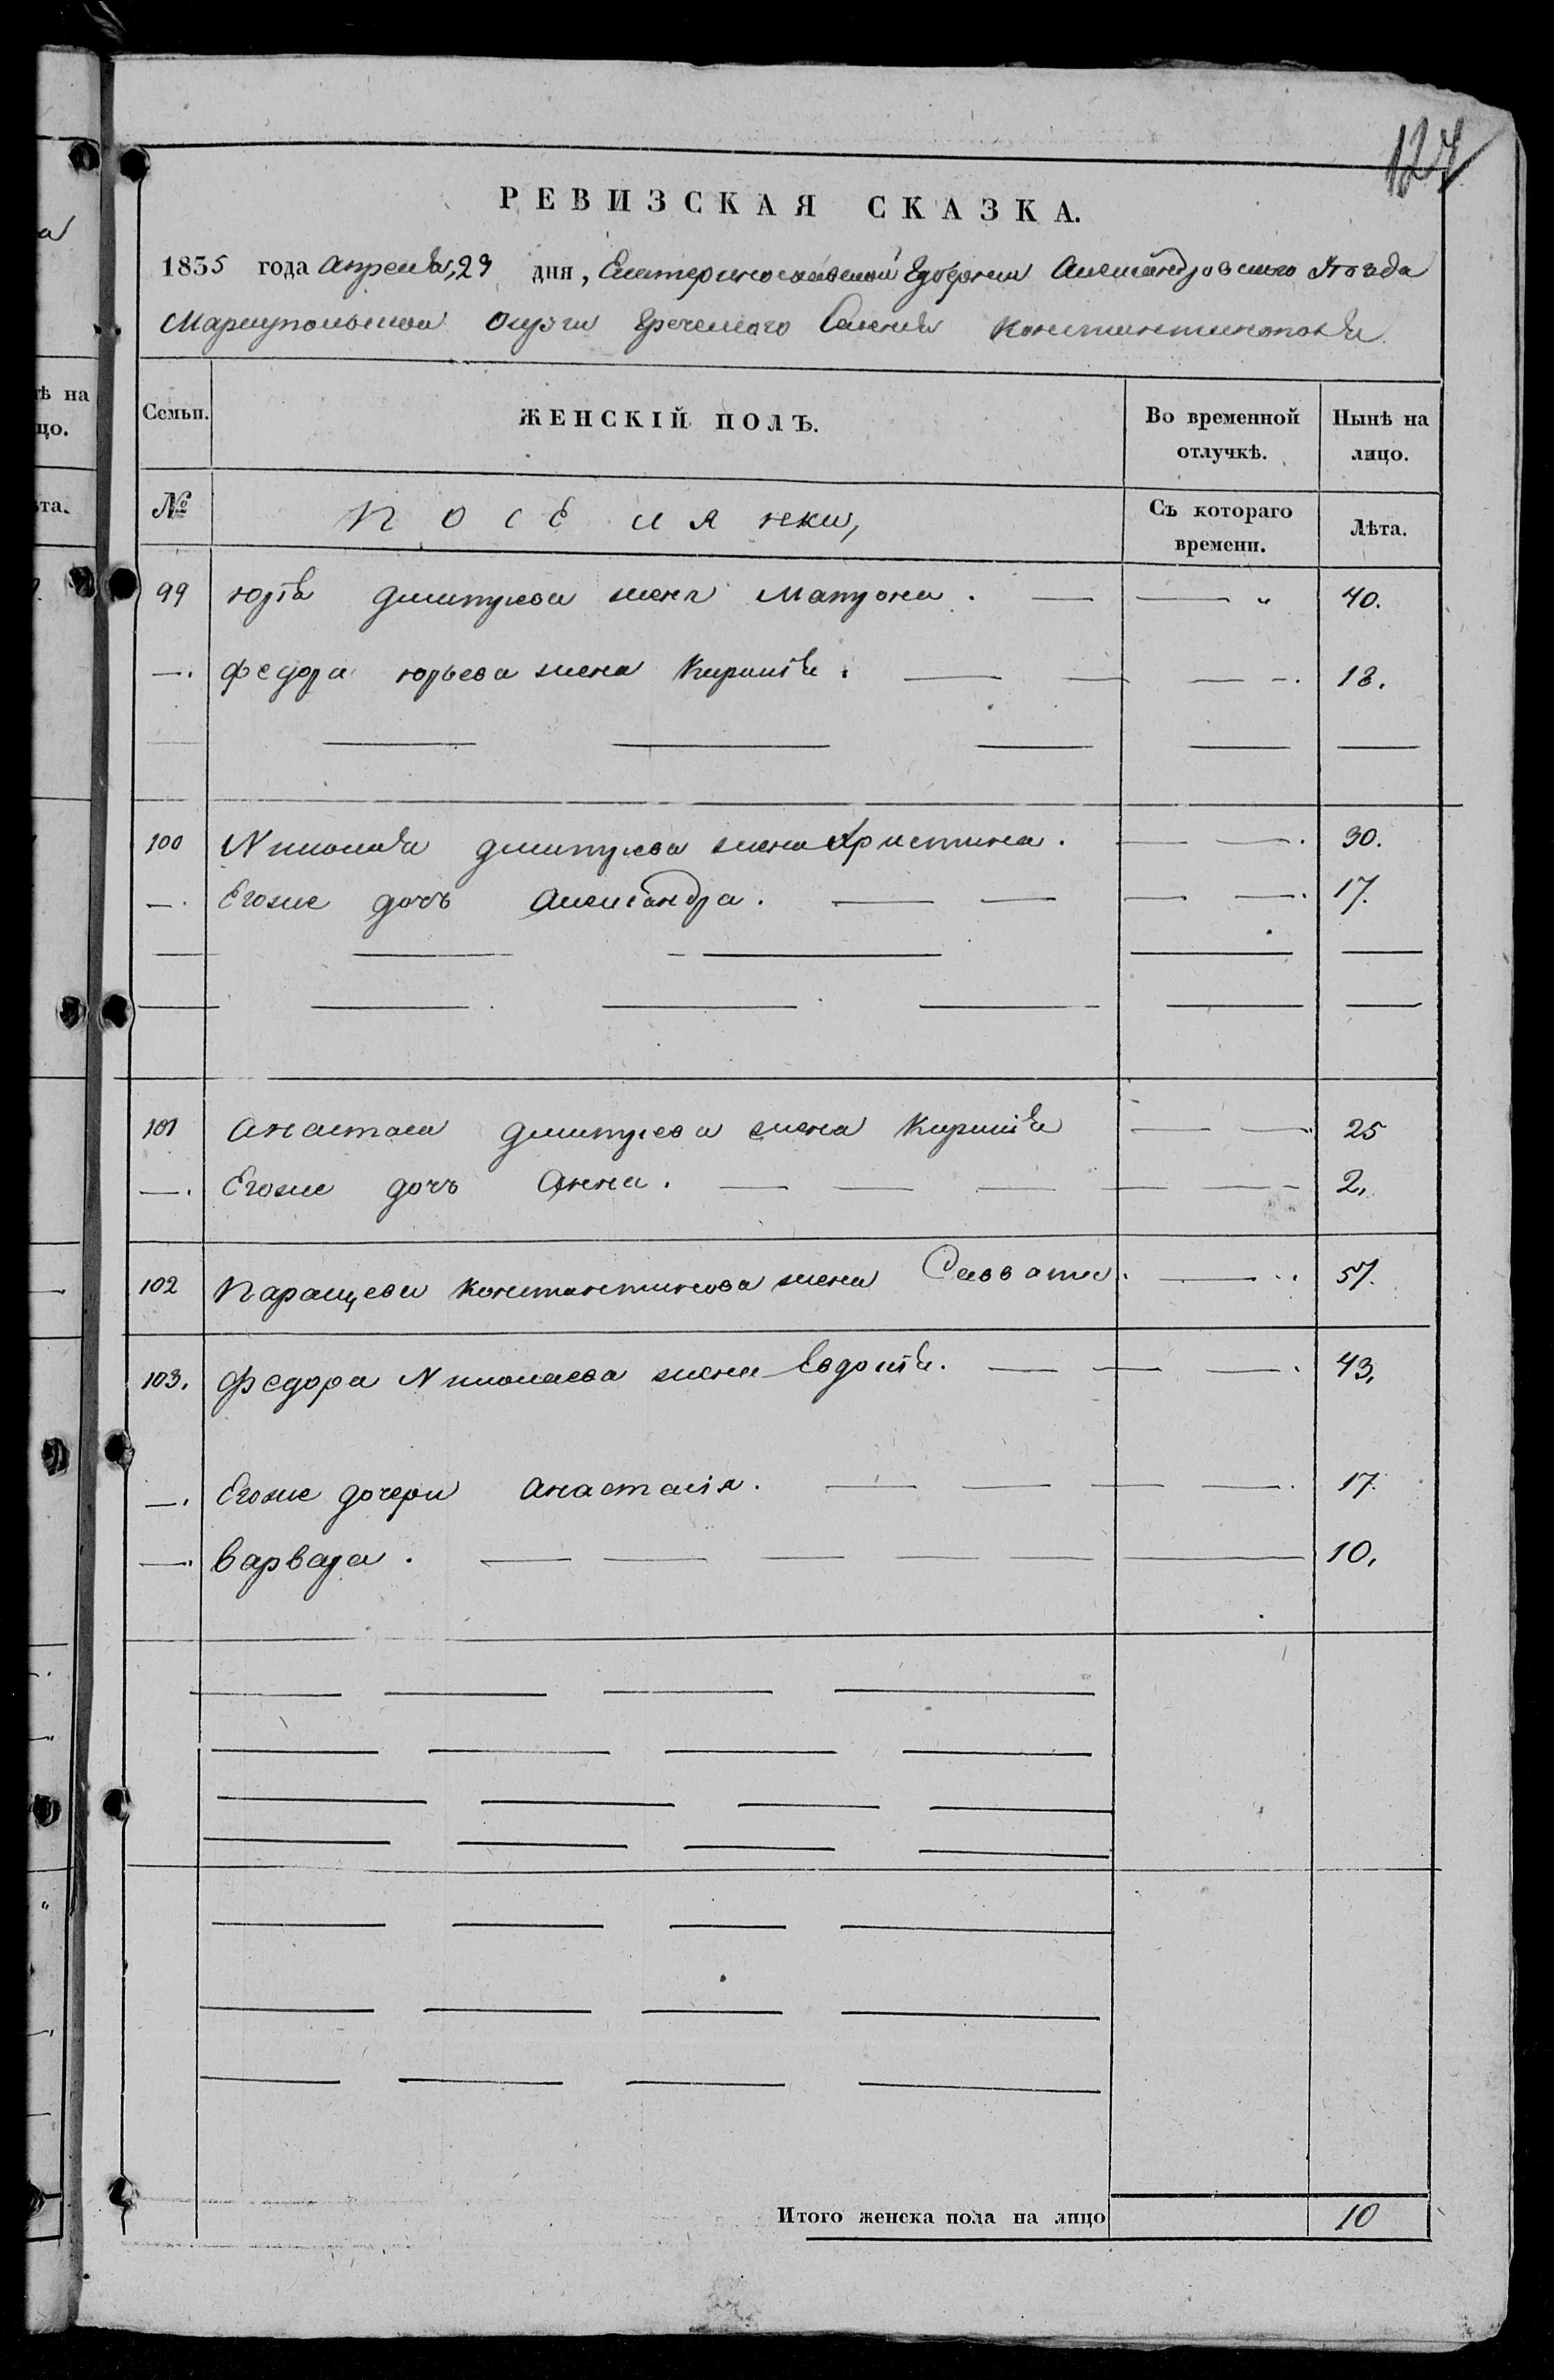 127
РЕВИЗСКАЯ СКАЗКА.
1835 года Апреля, 29 дня, Екатеринославской Губернии Александровского Уѣзда
Мариупольской Округи Греческого Селения Константинополя
Семьи. ЖЕНСКІЙ ПОЛЪ. Во временной отлучкѣ. Нынѣ на лицо.
№ Поселянки, Съ котораго времени. Лѣта.
99 Юрія Дмитриева жена Матрона. 40.
Федора Юрьева жена Кирикія. 18.
100 Николая Дмитриева жена Христина. 30.
Егоже дочъ Александра. 17.
101 Анастаса Дмитриева жена Кирикія 25
Егоже дочъ Анна. 2.
102 Паращева Константинова жена Саввати. 57.
103. Федора Николаева жена Евдокія. 43,
Егоже дочери Анастасія. 17.
Варвара. 10.
Итого женска пола на лицо 10
ѣ на
цо.
ѣта.